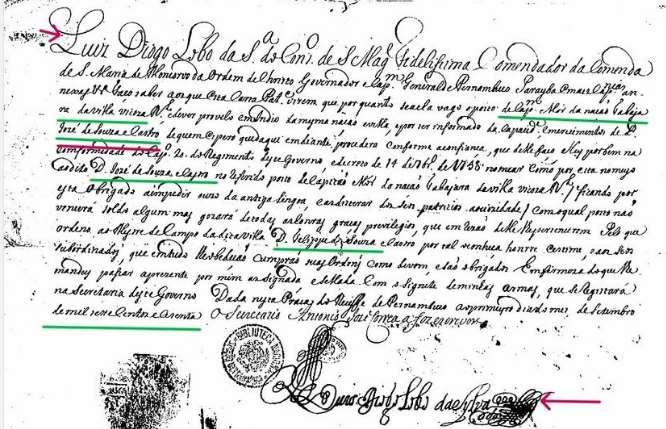 Luiz Diogo Lobo da S.ª do Con.º de S. Mag.e Fidelissima Comendador da Comenda
de S. Maria de Moncorvo da Ordem de Christo Governador e Cap.m General de Pernambuco Parayba e mais Cap.as an-
nexas V.ª Faço saber aos que esta Carta Pat.e virem que por quanto se acha vago o posto de Cap.m Mór da nação Tabaja
ra da Villa Viçoza R. e dever provelo em Indio da mesma nação e villa, e por ser informado da e merecimentos de D.
José de Souza e Castro de quem espero que daqui em diante, procedera conforme a confiança, que delle faço Hey por bem na
conformidade do Cap. 20. do Regimento deste Governo e decreto de 14 de de 1755 nomear como por esta nomeyo
ao dito D. José de Souza e Castro no referido posto de Capitão Mór da nação Tabajara da Villa Viçoza R. ficando por
esta obrigado a impedir uso da antiga lingoa, e os seus patricios a ociosidade; com o qual posto não
vencerá soldo algum mas gozará de todas as honras graças previlegios, que em razão delle Pelo que
ordeno, ao Mestre de Campo da dita villa D. Felippe de Souza e Castro por tal o tenha honre e estime, e aos seus
subordinados, que em tudo lhe obedeção cumprão suas Ordens como devem, e são obrigados Em firmeza do que lhe
mandey passar a prezente por mim assignada e sellada com o signete de minhas armas, que se registará
na Secretaria deste Governo Dada nesta Praça do Reciffe de Pernambuco aos dias do mes, de Setembro
de mil sete centos e secenta O Secretario Antonio José Correa a fez escrever
BIBLIOTECA
Luiz Diogo Lobo da Sylva